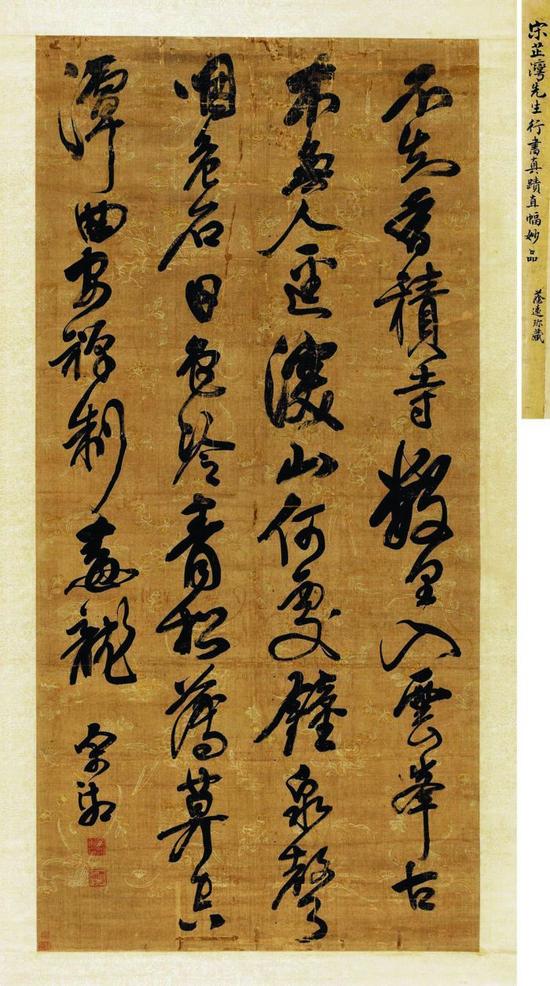 不知香積寺數里入雲峯古
木無人逕深山何處鐘泉聲
咽危石日色冷青松薄莫空
潭曲安禪制毒龍
宋湘
宋芷灣先生行書真蹟直幅妙品
蔭遠珎藏